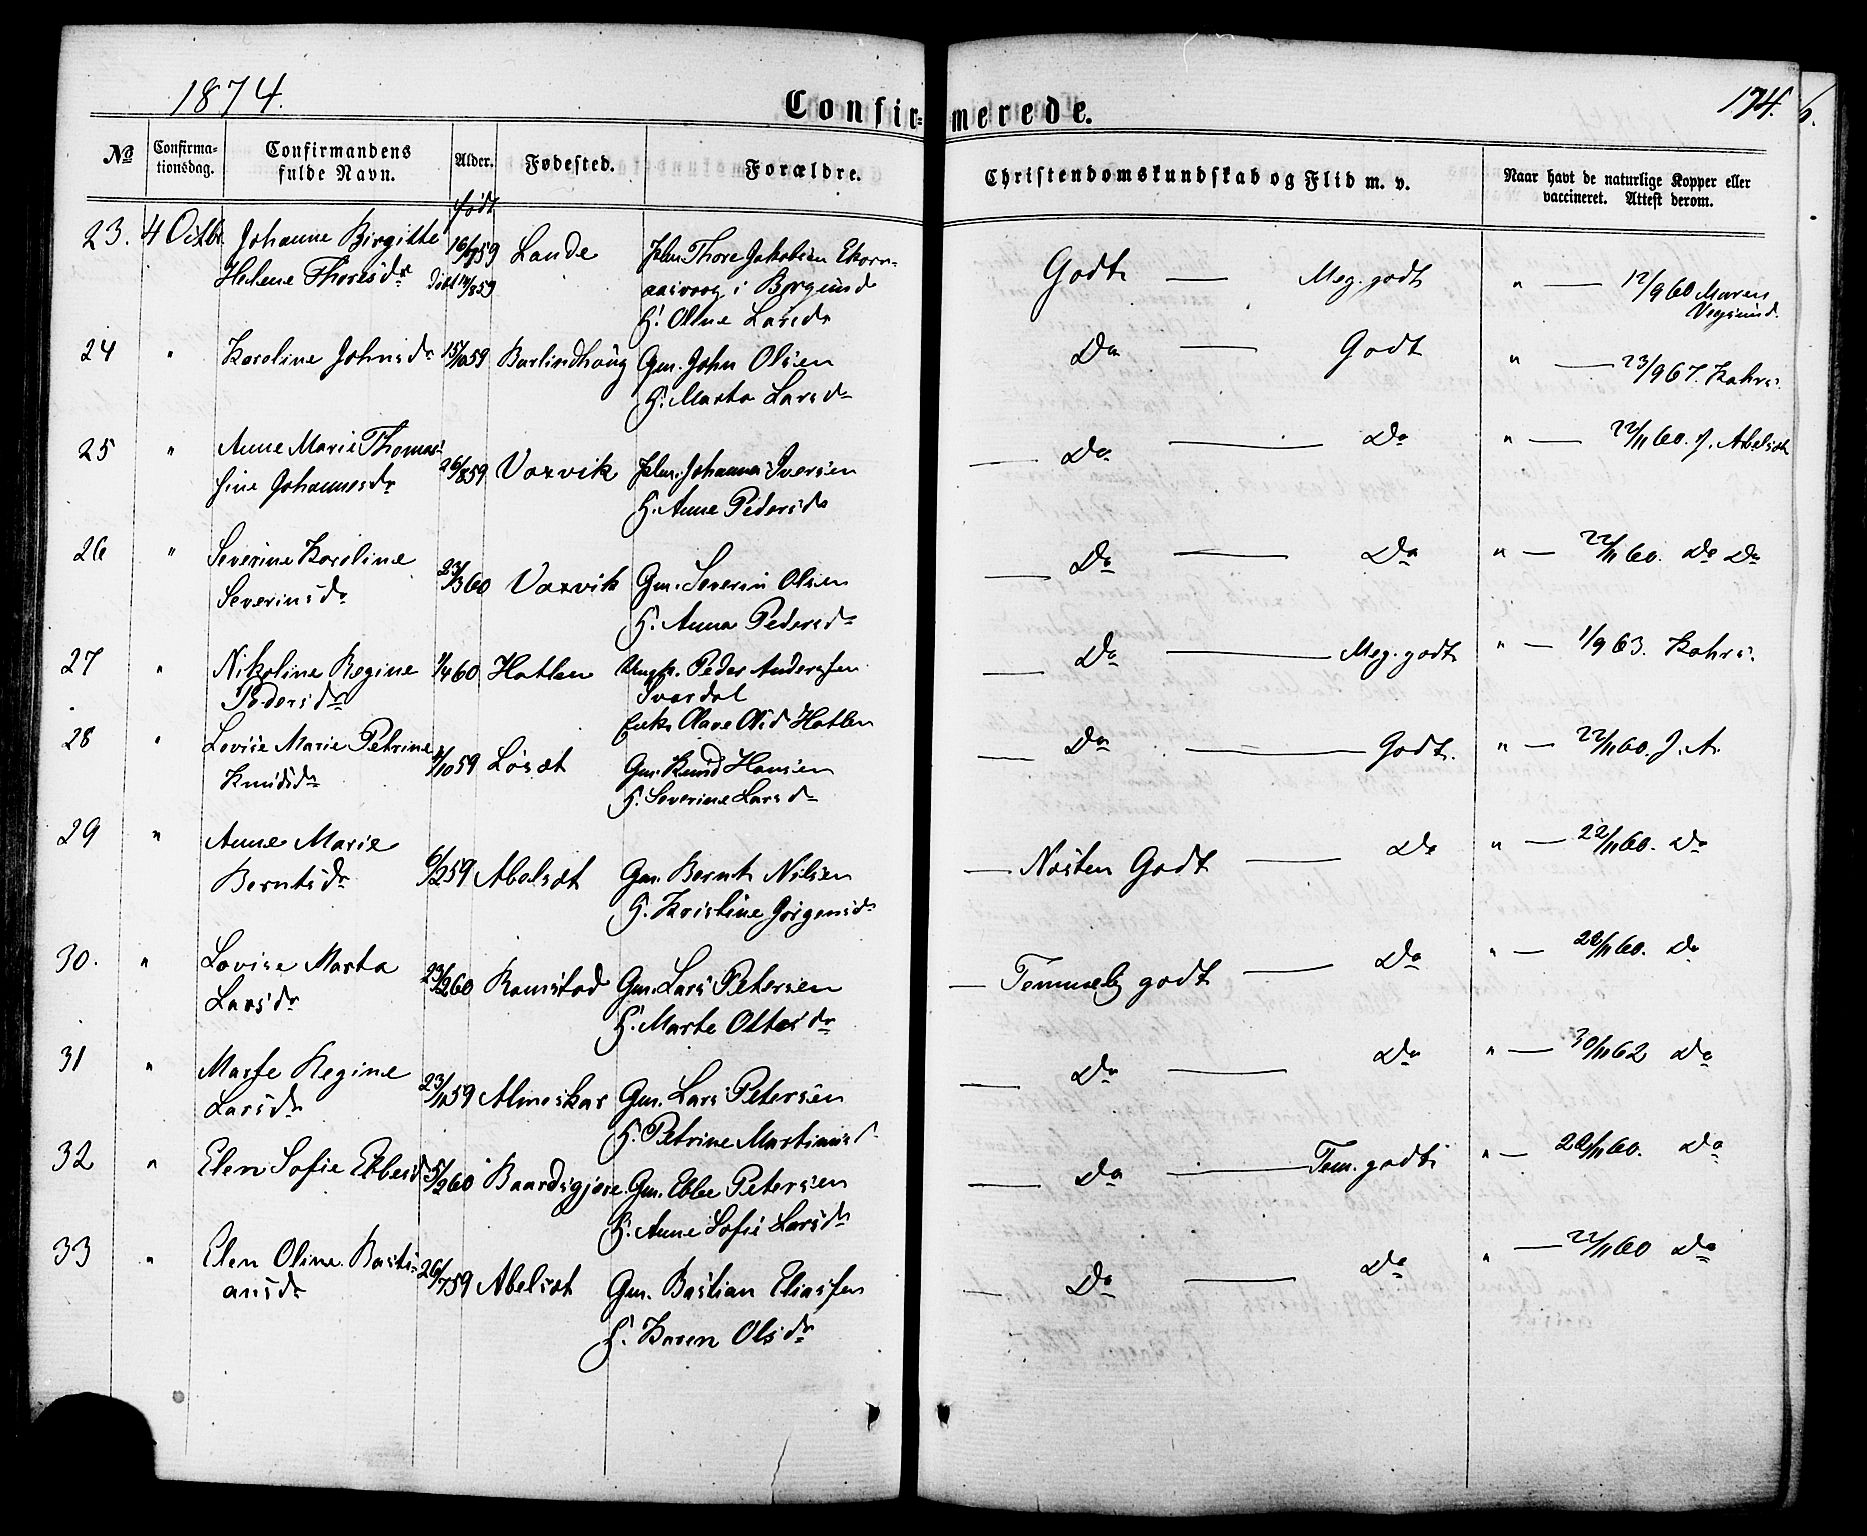 1874.
Confirmerede.
174.
6.
No
Confirma-
tionsdag.
Confirmandens
fulde Navn.
Alder.
født
Fødested.
Forældre.
Christendomskundskab og Flid m. v.
Naar havt de naturlige Kopper eller
vaccineret. Attest derom.
23. 4 Octbr. Johanne Birgitte 16/7 59 Lande Thore Jakobsen Ekorn-
Helene Thoresdr døbt 14/8 59 aasvaag i Borgund
H. Oline Larsdr
Godt — Meg. godt " — 12/9 60 Maren
Vegsund.
24 " Karoline Johnsdr 15/10 59 Barlindhaug Gm. John Olsen
H. Marta Larsdr
Do — Godt " — 23/9 67. Kahrs.
25 " Anne Marie Thomas-
sine Johannesdr 26/8 59 Vaxvik Johannes Iversen
H. Anne Pedersdr
— Do — Do " — 22/11 60. J. Abelsæt
26 " Severine Karoline
Severinsdr 23/3 60 Vaxvik Gm. Severin Olsen
H. Anna Pedersdr
— Do — Do " — 22/11 60. Do Do
27 " Nikoline Regine 1/4 60 Hatlen Ungk. Peder Anderssen
Pedersdr Svardal
Enke Olave Olsd Hatlen
— Do — Meg. godt " — 1/9 63. Kahrs.
28 " Lovise Marie Petrine
Knudsdr 1/10 59 Løsæt Gm. Knud Hansen
H. Severine Larsdr
— Do — Godt. " — 22/11 60. J. A.
29 " Anne Marie
Berntsdr 6/12 59 Abelsæt Gm. Bernt Nilsen
H. Kristine Jørgensdr
— Næsten Godt — Do " — 22/11 60. Do
30. " Lovise Marta
Larsdr 23/2 60 Ramstad Gm. Lars Petersen
H. Marte Ottesdr
— Temmelig godt — Do " — 22/11 60. Do
31 " Marte Regine
Larsdr 23/10 59 Almeskar Gm. Lars Petersen
H. Petrine Martinusd.
— Do — Do " — 30/11 62 Do
32 " Elen Sofie Ebbesd 5/2 60 Baardsgjære Gm. Ebbe Petersen
H. Anne Sofie Larsdr
— Do — Tem. godt " — 22/11 60. Do
33 " Elen Oline Basti-
ansdr 26/7 59 Abelsæt Gm. Bastian Eliassen
H. Karen Olsdr
— Do — Do " — 22/11 60 Do